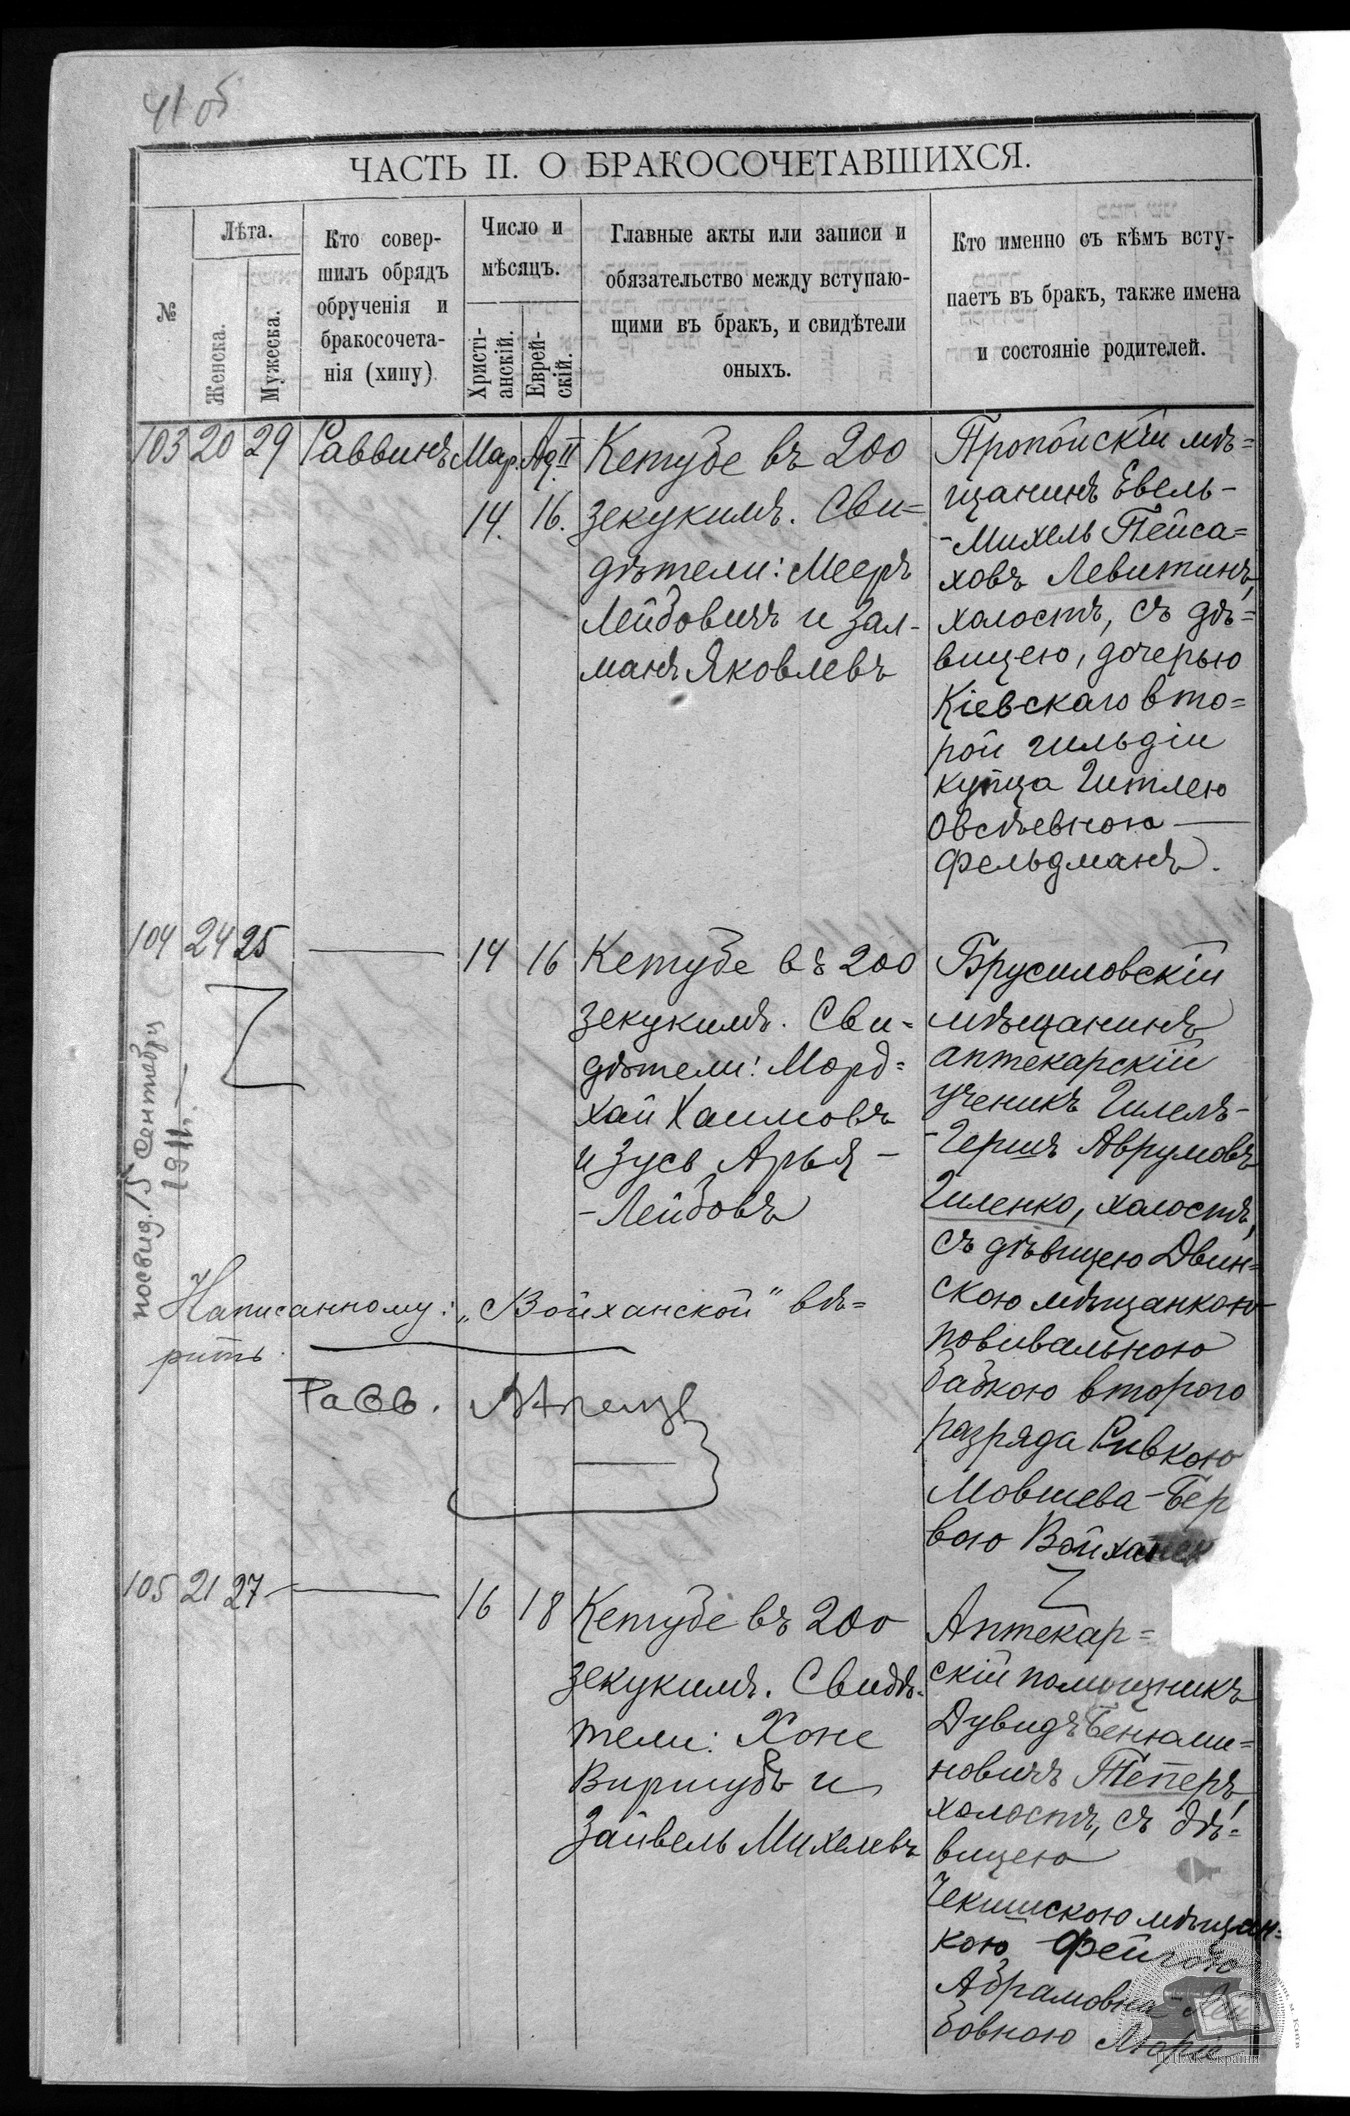 41 об
ЧАСТЬ II. О БРАКОСОЧЕТАВШИХСЯ.
№
Лѣта.
Женска.
Мужеска.
Кто совер-
шилъ обрядъ
обрученія и
бракосочета-
нія (хипу)
Число и
мѣсяцъ.
Христі-
анскій.
Еврей-
скій.
Главные акты или записи и
обязательство между вступаю-
щими въ бракъ, и свидѣтели
оныхъ.
Кто именно съ кѣмъ всту-
паетъ въ бракъ, также имена
и состояніе родителей.
103 20 29 Раввинъ Мар. Ад. II
14. 16.
Кетубе въ 200
зекукимъ. Сви=
дѣтели: Мееръ
Лейбовичъ и Зал-
манъ Яковлевъ
Пропойскій мѣ=
щанинъ Евель-
-Михель Пейса=
ховъ Левитинъ,
холостъ, съ дѣ=
вицею, дочерью
Кіевскаго вто=
рой гильдіи
купца Гитлею
Овсѣевною —
Фельдманъ.
104 24 25 — 14 16
Кетубе въ 200
зекукимъ. Сви=
дѣтели: Морд=
хай Хаимовъ
и Зусь Арья -
-Лейбовъ
Брусиловскій
мѣщанинъ
аптекарскій
ученикъ Гилель-
-Гершъ Аврумовъ
Гиленко, холостъ,
съ дѣвицею Двин=
скою мѣщанкою
повивальною
бабкою второго
разряда Ривкою
Мовшева-Бер
вою Войханск
посвид. 15 Сентября
1911.
Написанному: „Войханской" вѣ=
рить.
Равв.
105 21 27 — 16 18
Кетубе въ 200
зекукимъ. Свидѣ=
тели: Хоне
Виршубъ и
Зайвель Михелевъ
Аптекар=
скій помощникъ
Дувидъ Бенюми=
новичъ Теперъ,
холостъ, съ дѣ=
вицею
Чекишскою мѣщан=
кою Фейгою
Абрамовна-
бовною
ЦДІАК України